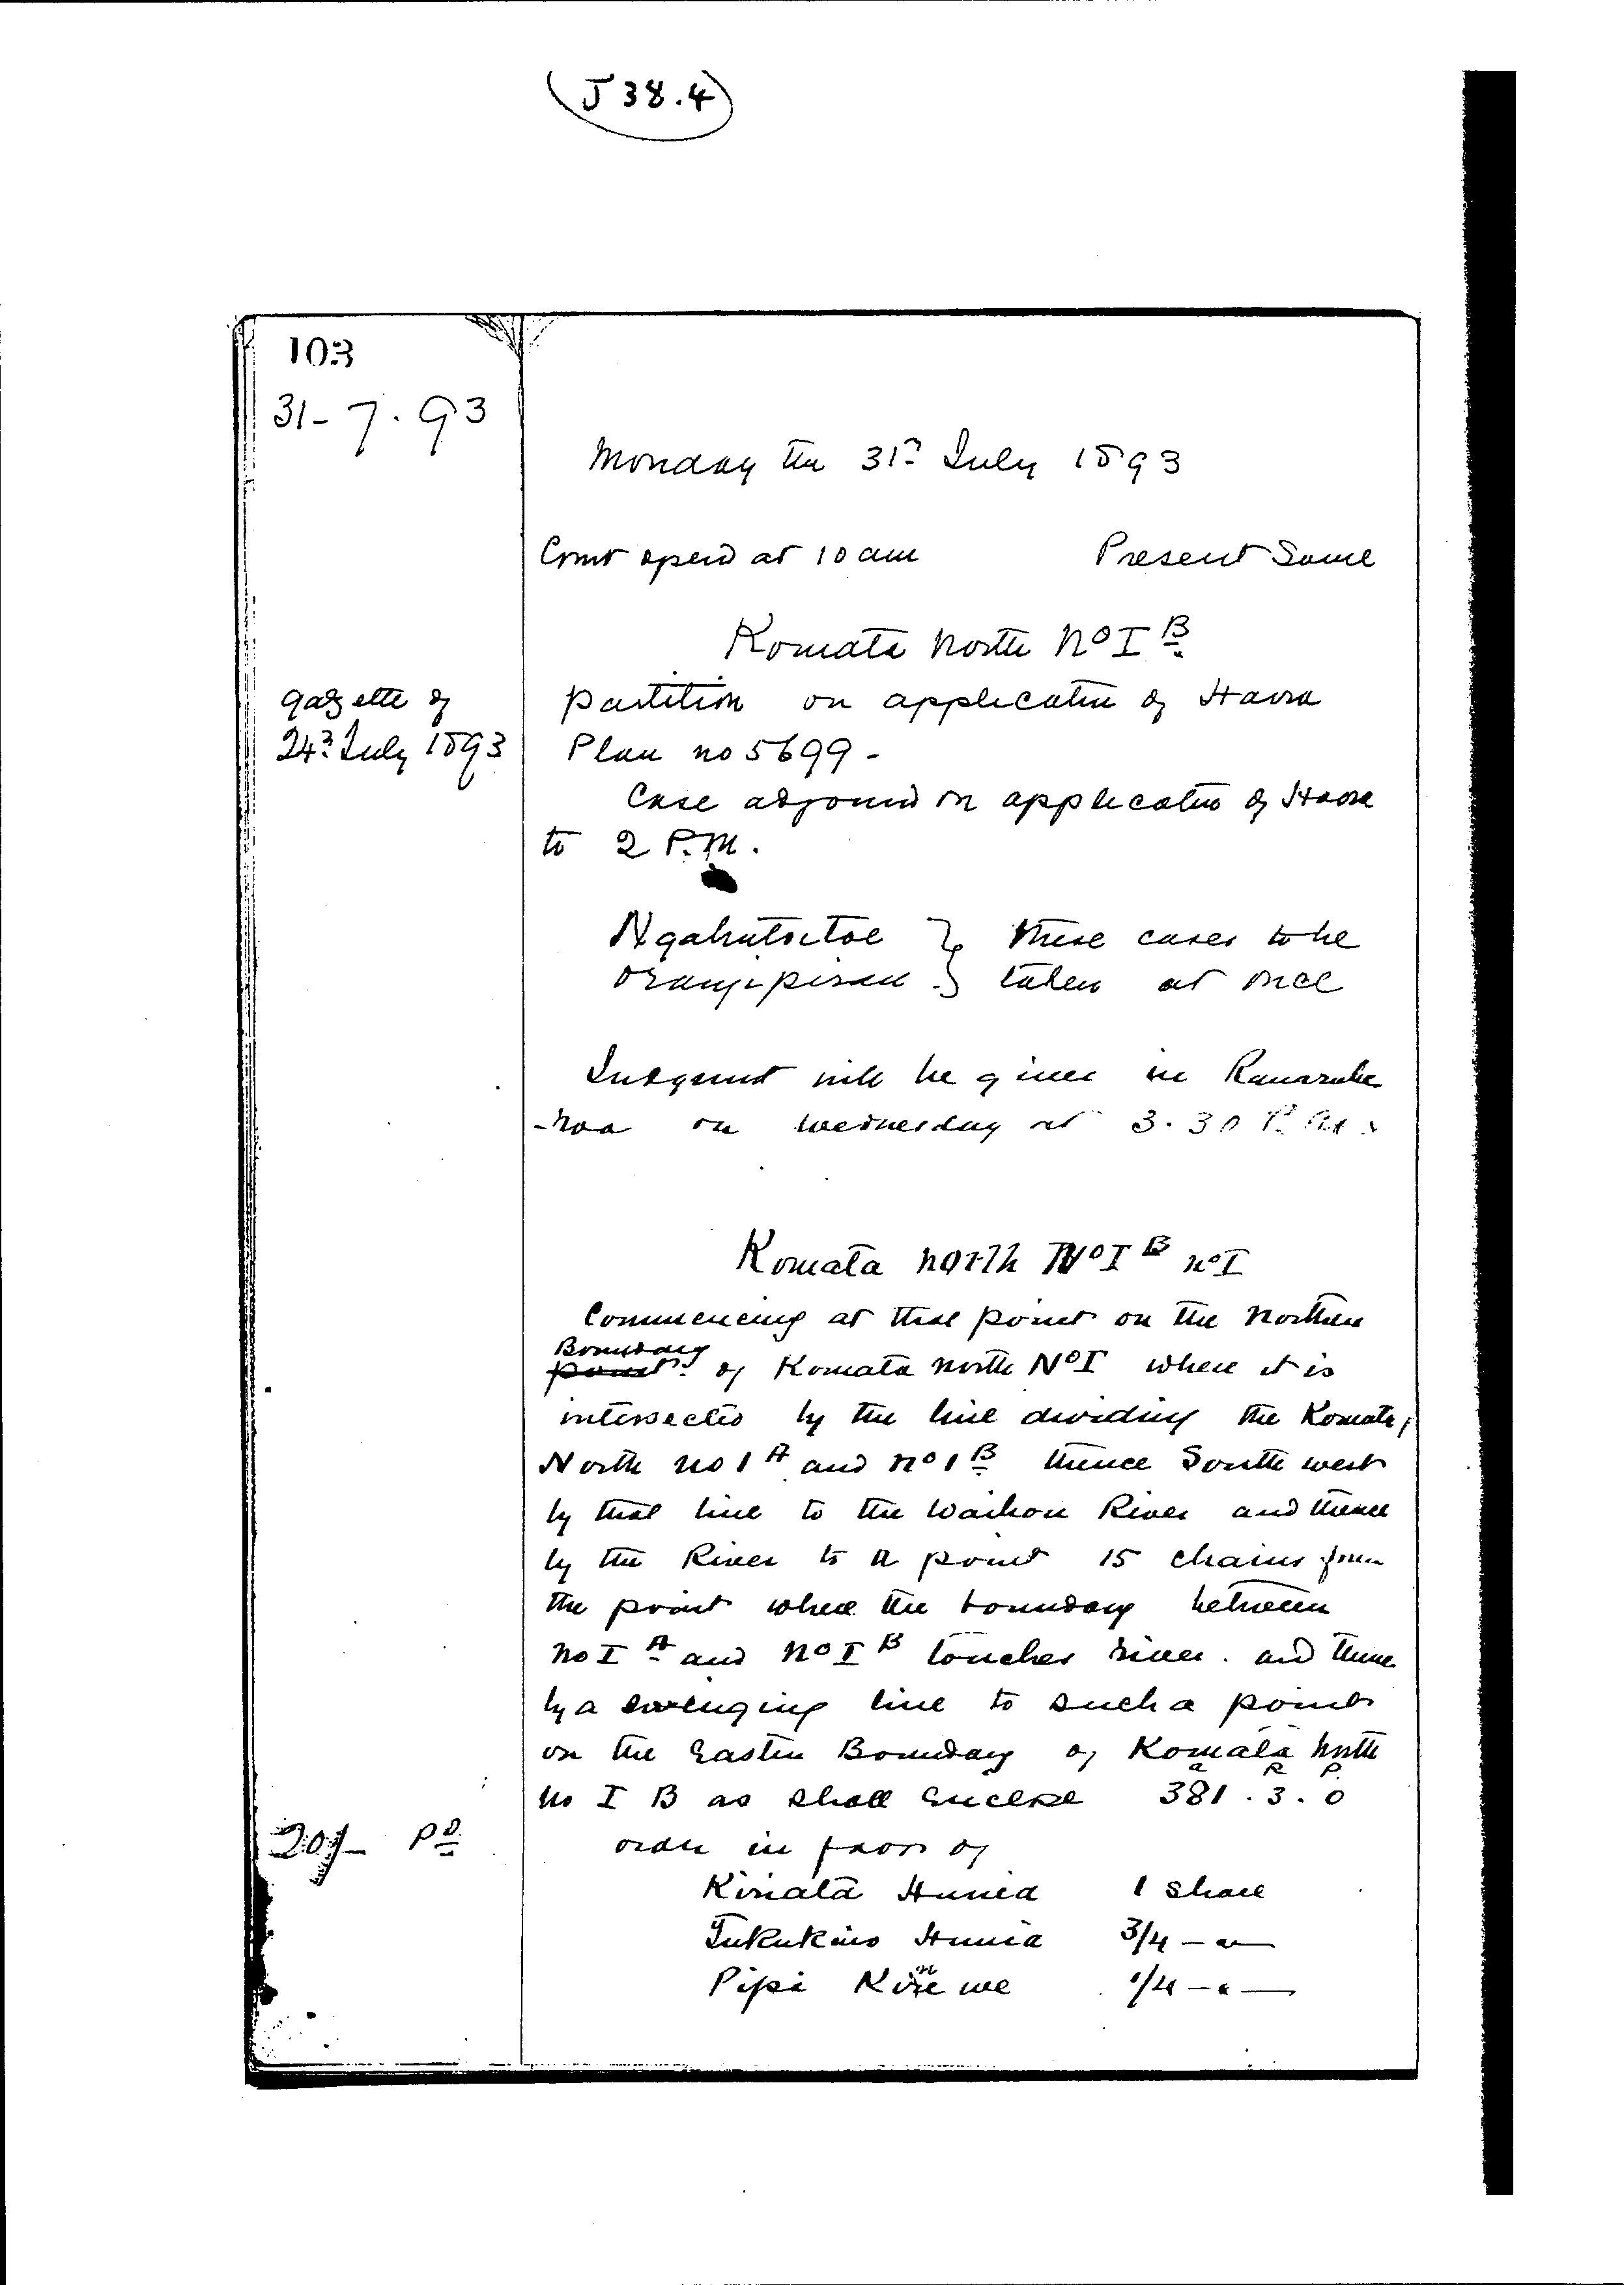 J 38.4
103
31-7.93
Monday the 31st July 1893
Court opend at 10 am Present Same
Komata North No I B
Gazette of
24th July 1893
partition on application of Haora
Plan no 5699 -
Case adjournd on application of Haora
to 2 P.M.
Ngahutoitoi } these cases to be
} taken at once
Judgment will be given in
-hoa on Wednesday at 3.30 P.M.
Komata North No I B no I
Commencing at that point on the Northern
Boundary
point of Komata North No I where it is
intersected by the line dividing the Komata
North no 1 A and no 1 B thence South west
by that line to the Waihou River and thence
by the River to a point 15 chains from
the point where the boundary between
No I A and No I B touches river. and thence
by a swinging line to such a point
on the Eastern Boundary of Komata North
a R P
No I B as shall enclose 381.3.0
20/- pd
order in favor of
Kirata Hunia 1 Share
Tukukino Hunia 3/4 - " -
Pipi 1/4 - " -